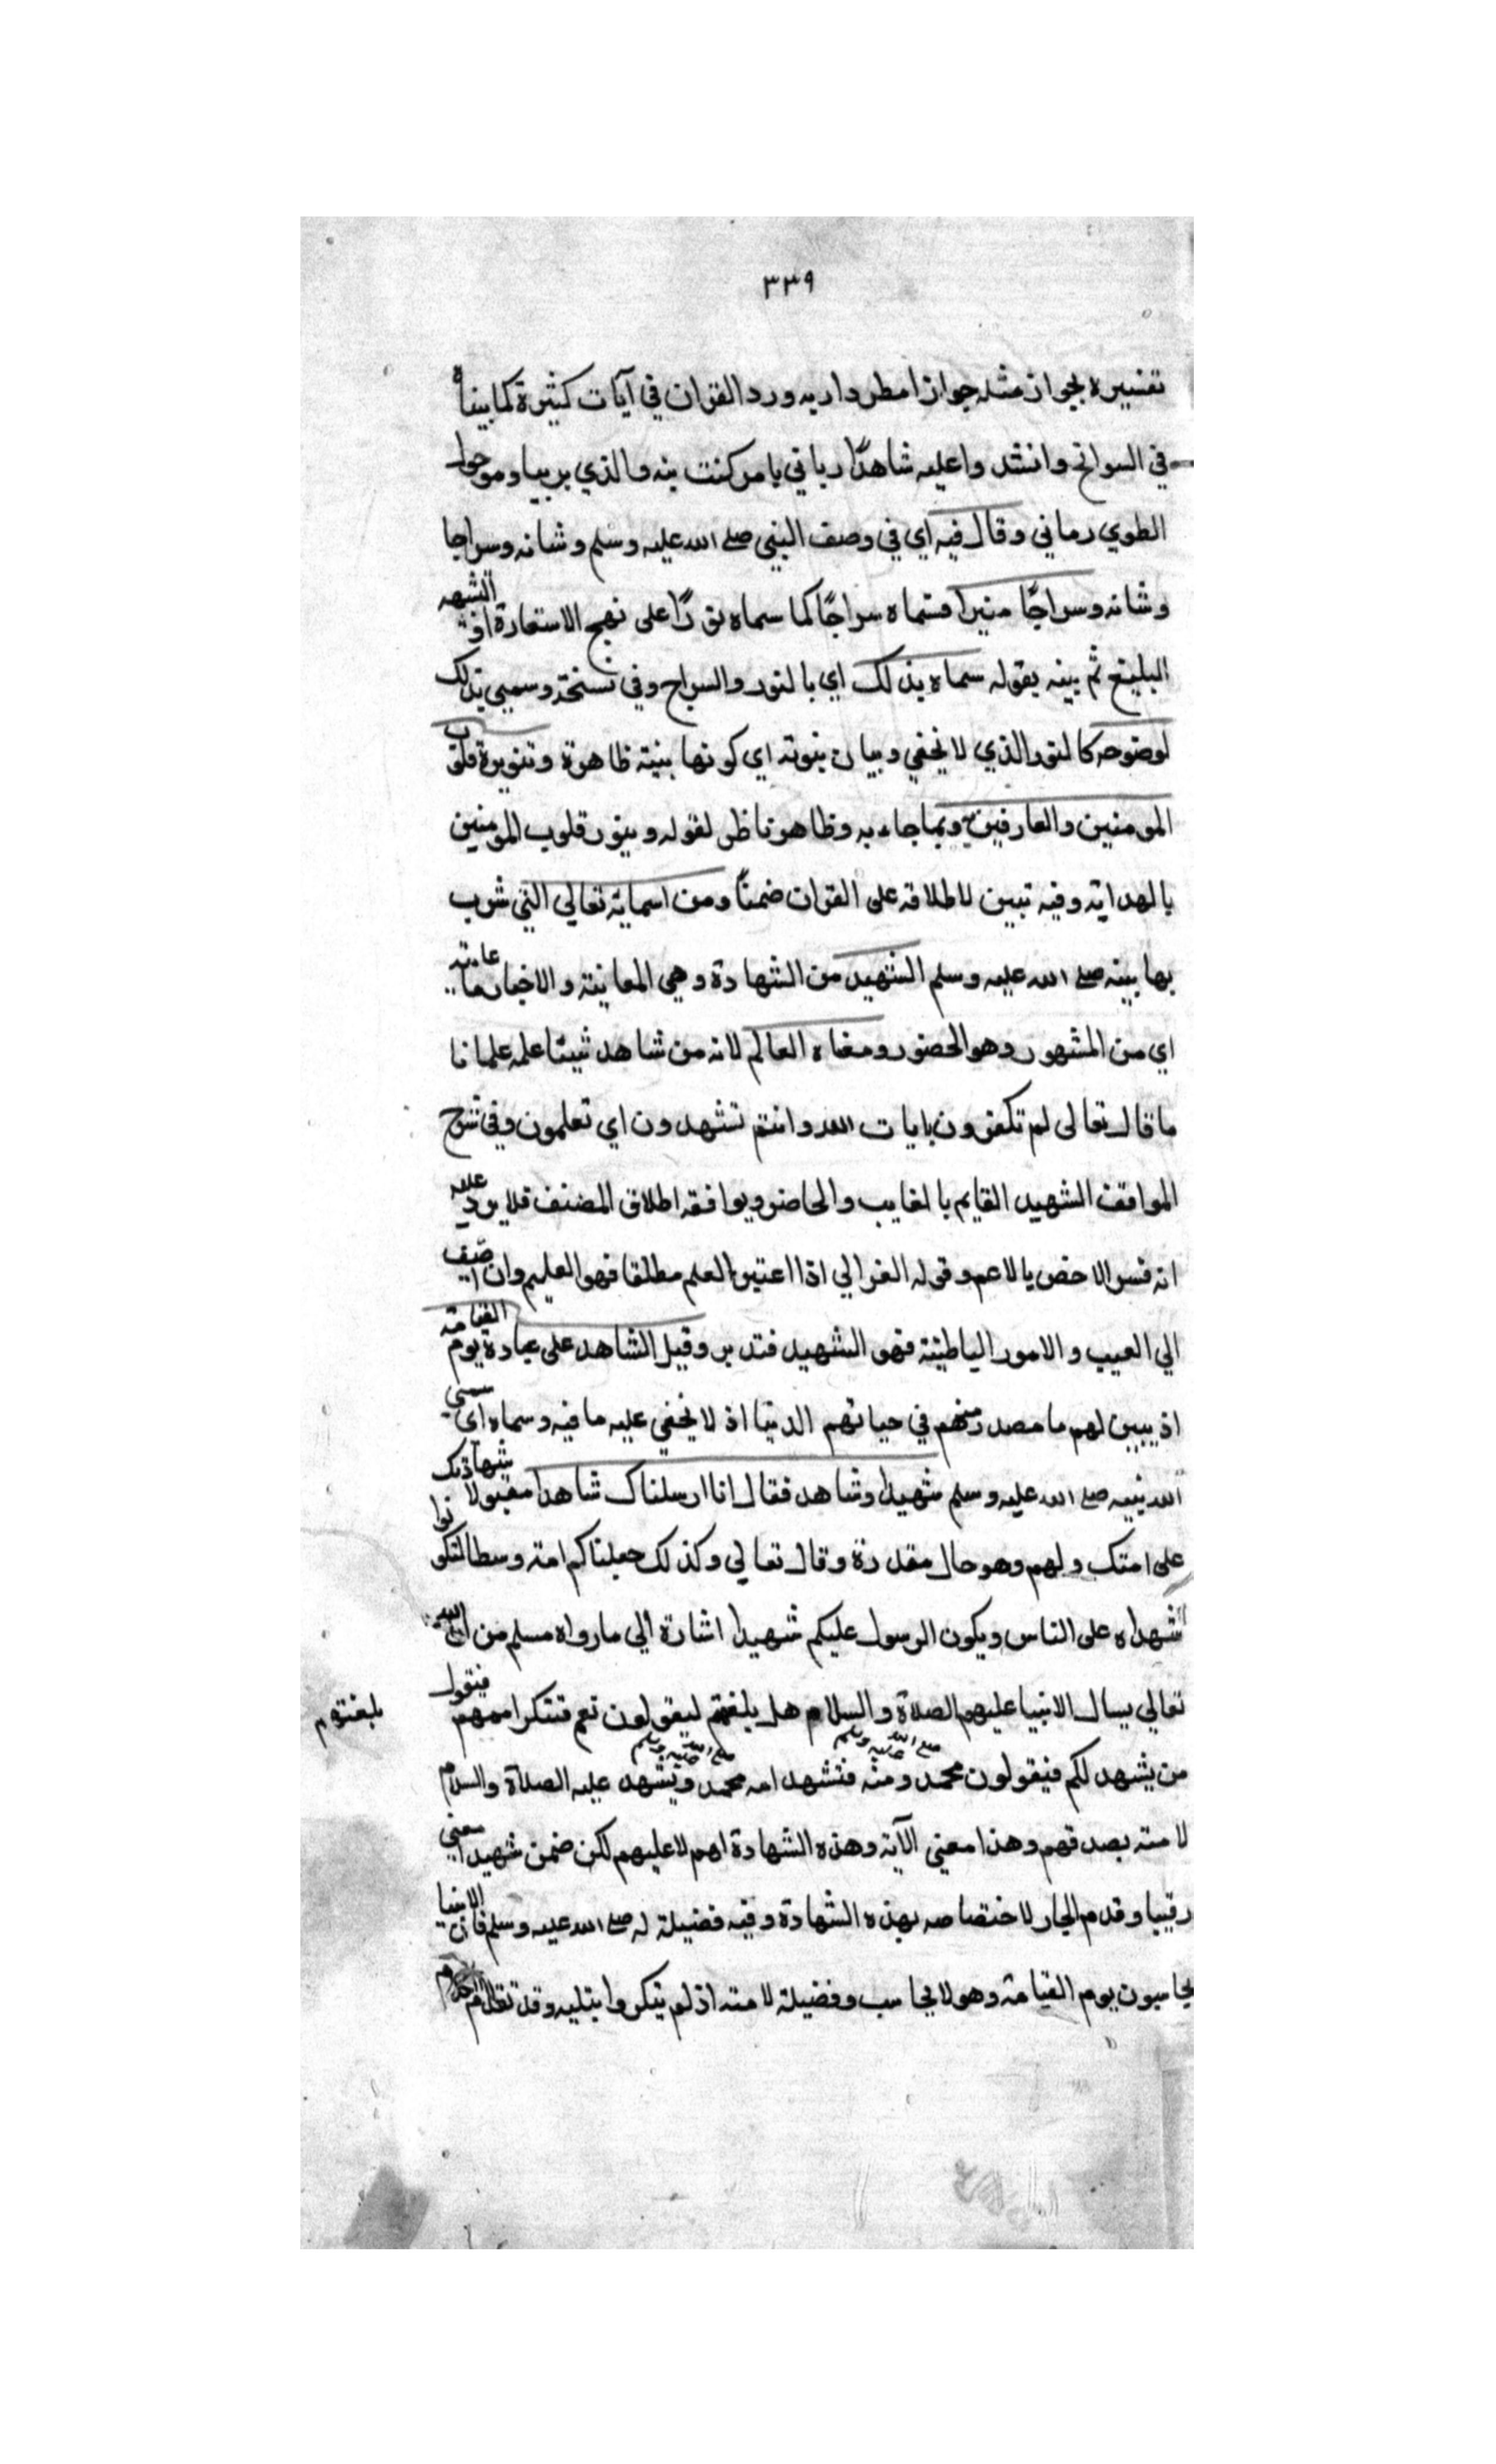 ٣٣٩
تفسيره لجواز مثله جوازا مطردا ربه ورد القران في آيات كثيرة كما بيناه
في السوانح وانشدوا عليه شاهدًا رماني بامر كنت منه والذي بريا ومن حول
الطوي رماني وقال فيه اي في وصف النبي صلے الله عليه وسلم وشانه وسراجا
وشانه وسراجًا منيرا فسماه سراجًا كما سماه نورًا على نهج الاستعارة او التشبيه
البليغ ثم بينه بقوله سماه بذلك اي بالنور والسراج وفي نسخة وسمي بذلك
لوضوحه كالنور الذي لا يخفي وبيان نبوته اي كونها بينة ظاهرة وتنويره قلوب
المومنين والعارفين وبما جاء به وظاهر ناظر لقوله وينور قلوب المومنين
بالهداية وفيه تبين لاطلاقه على القران ضمنًا ومن اسمائه تعالي التي شرب
بها بينه صلے الله عليه وسلم الشهيد من الشهادة وهي المعاينة والاخبار عاينه
اي من المشهور وهو الحضور ومعناه العالم لانه من شاهد شيئا علمه علما نا
ما قال تعالى لم تكفرون بايات الله وانتم تشهدون اي تعلمون وفي شرح
المواقف الشهيد القايم بالغايب والحاضر ويوافقه اطلاق المصنف فلا يرد عليه
انه فسر الاخص بالاعم وقوله الغزالي اذا اعتبر العلم مطلقا فهو العليم وان اضيف
الي الغيب والامور الباطنة فهو الشهيد فتدبر وقيل الشاهد على عباده يوم القيامة
اذ يبين لهم ما صدر منهم في حياتهم الدنيا اذ لا يخفي عليه ما فيه وسماه اي سمي
الله نبيه صلے الله عليه وسلم شهيدا وشاهد فقال انا ارسلناك شاهدا مقبولا شهادتك
على امتك ولهم وهو حال مقدرة وقال تعالي وكذلك جعلناكم امة وسطا لتكونوا
شهداء على الناس ويكون الرسول عليكم شهيدا اشارة الي ما رواه مسلم من ان الله
تعالي يسال الانبيا عليهم الصلاة والسلام هل بلغتم ليقولون نعم فتنكر اممهم فيقول
بلغتهم
من يشهد لكم فيقولون محمد صلے الله عليه وسلم ومنه فتشهد امه محمد صلے الله عليه وسلم ويشهد عليه الصلاة والسلام
لامته بصدقهم وهذا معني الآية وهذه الشهادة لهم لا عليهم لكن ضمن شهيدا معني
رقيبا وقدم الجار لاختصاصه بهذه الشهادة وفيه فضيلة له صلے الله عليه وسلم فان الانبيا
يحاسبون يوم القيامة وهو لا يحاسب وفضيلة لامته اذ لم ينكروا تبليه وقد تقدم